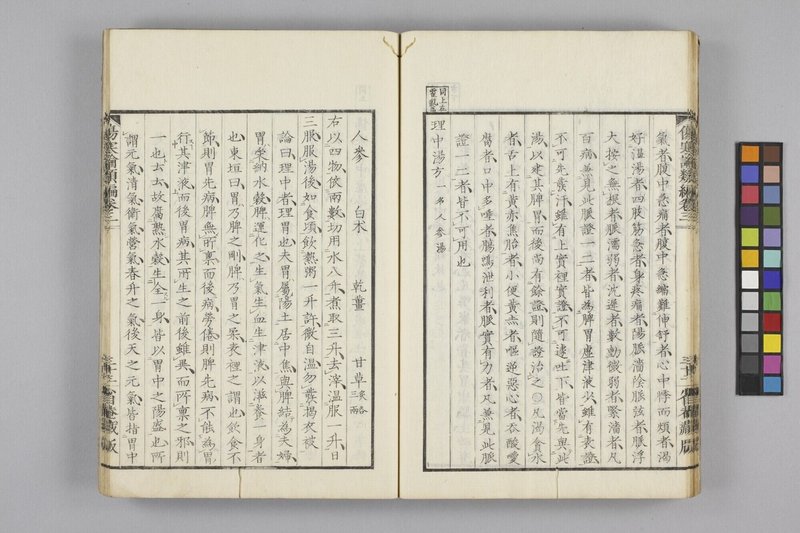 氣者腹中急痛者腹中急縮難伸舒者心中悸而煩者渴
好溫湯者四肢筋急者身疼痛者陽脈濇陰脈弦者脈浮
大按之無根者脈濡弱者沈遲者數動微弱者緊濇者凡
百病兼見此脈證一二者皆為脾胃虛津液少雖有表證
不可先發汗雖有上實裡實證不可遽吐下皆當先與此
湯以建其脾胃而後尚有餘證則隨證治之○凡湯食水
者舌上有黃赤焦胎者小便黃赤者嘔逆惡心者吞酸嗳
腐者口中多唾者腸鳴泄利者脈實有力者凡兼見此脈
證一二者皆不可用也
理中湯方 一名人參湯
人參 白朮 乾薑 甘草 炙各三兩
右以四物㕮咀兩數切用水八升煮取三升去滓溫服一升日
三服服湯後如食頃飲熱粥一升許微自溫勿發揭衣被
論曰理中者理胃也夫胃屬陽土居中焦與脾結為夫婦
胃受納水穀脾運化之生氣生血生津液以滋養一身者
也東垣曰胃乃脾之剛脾乃胃之柔表裡之謂也飲食不
節則胃先病脾無所稟而後病勞倦則脾先病不能為胃
行其津液而後胃病其所生之前後雖異而所稟之邪則
一也去去故腐熟水穀生全一身皆以胃中之陽盛也所
謂元氣清氣衛氣營氣春升之氣後天之元氣皆指胃中
傷寒論類編卷三